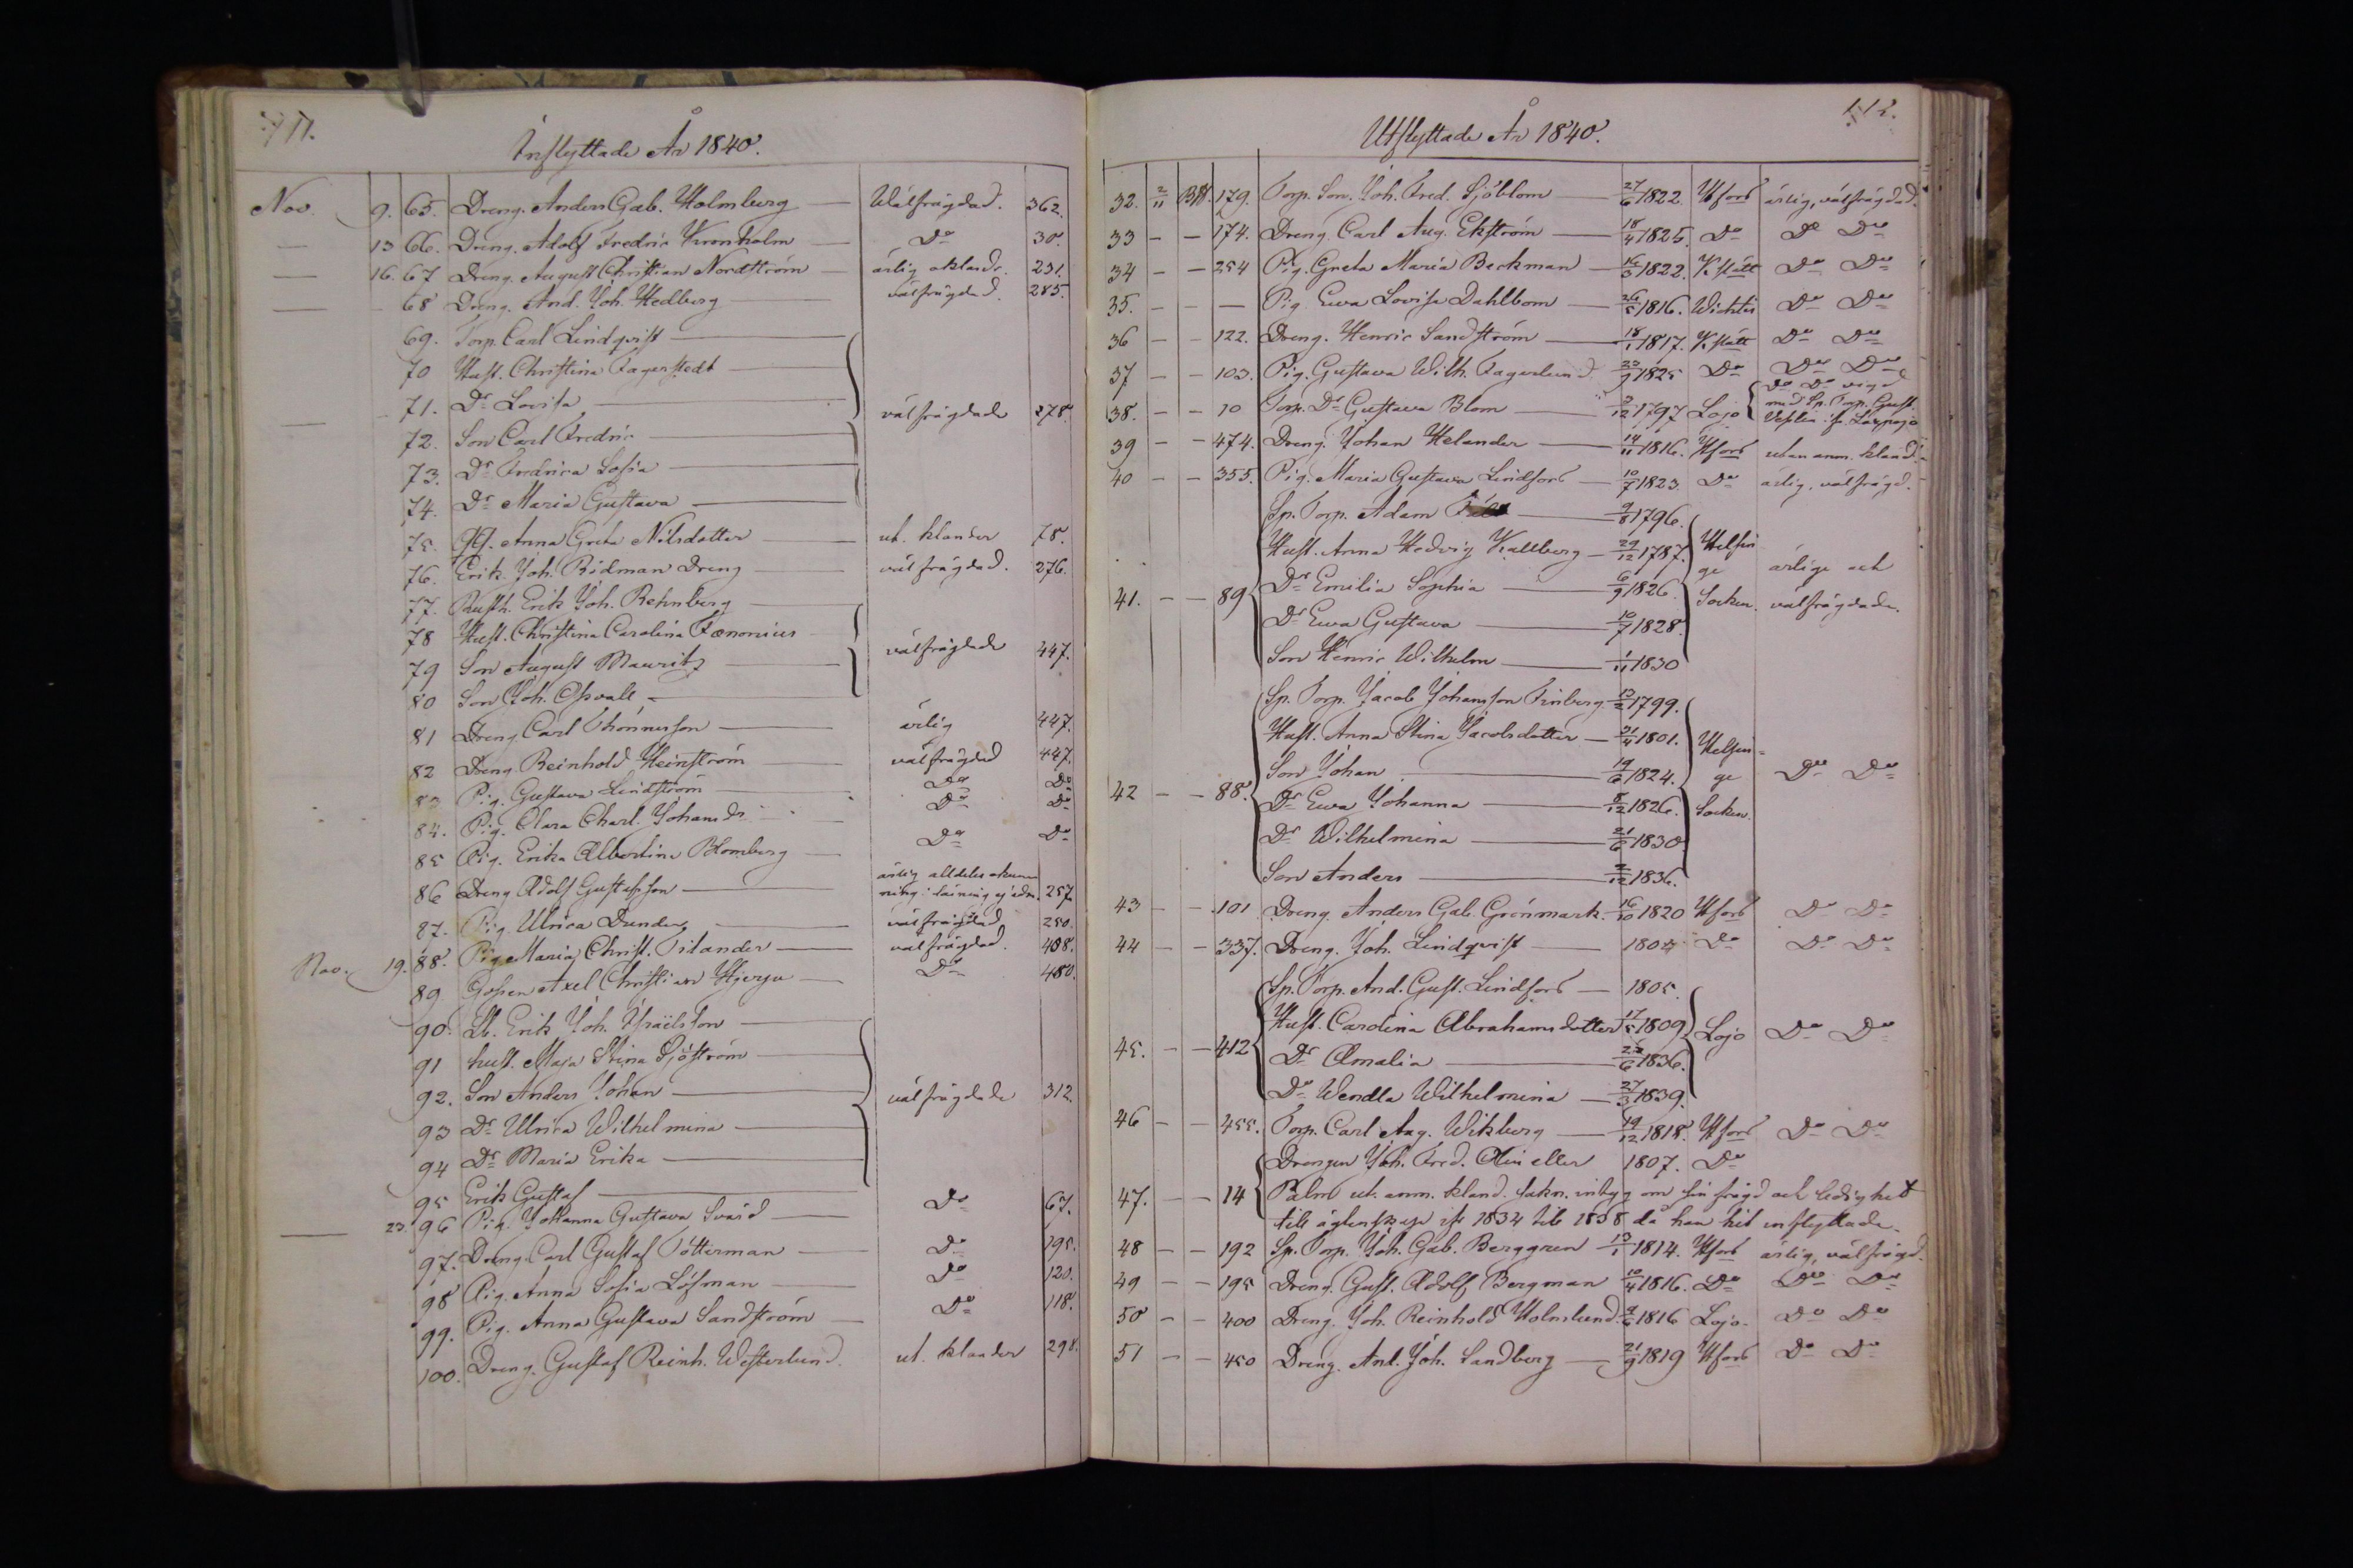 Inflyttade År 1840.
Nov. 9. 65. Dreng. Anders Gab. Holmberg — Wälfrägdad. 362.
— 13 66. Dreng. Adolf Fredric Kronholm — Do 30.
— 16. 67 Dreng. August Christian Nordström — ärlig oklandr. 231.
— 68 Dreng. And. Joh. Hedberg — välfrägdad. 285.
69. Torp. Carl Lindqvist —
70 Hust. Christina Fagerstedt —
71. Dr Lovisa — välfrägdade 278.
72. Son Carl Fredric —
73. Dr Fredrica Sofia —
74. Dr Maria Gustava —
75. Anna Greta Nilsdotter — ut. klander 78.
76. Erik Joh. Ridman Dreng — välfrägdad. 276.
77. Erik Joh. Rehnberg —
78 Hust. Christina Carolina Fænonius
79 Son August Mauritz — välfrägdade 447.
80 Son Joh. Osvald —
81 Dreng Carl Thönnesson — ärlig 447.
82 Dreng Reinhold Heinström — välfrägdad 447.
83 Pig. Gustava Lindström — Do Do
84. Pig. Clara Charl. Johansdr — Do Do
85 Pig. Erika Albertina Blomberg — Do Do
86 Dreng Adolf Gustafsson — ärlig alldeles okunnig i läsning 257
87. Pig. Ulrica Dunder — välfrägdad 250.
Nov. 19. 88. Pig. Maria Christ. Silander — välfrägdad. 408.
89 Gossen Axel Christian — Do 480.
90. Erik Joh. Israëlsson —
91 hust. Maja Stina Sjöström —
92. Son Anders Johan — välfrägdade 312.
93 Dr Ulrica Wilhelmina —
94 Dr Maria Erika —
95 Erik Gustaf —
— 23. 96 Pig. Johanna Gustava Svärd — Do 67.
97. Dreng Carl Gustaf Tötterman — Do 195.
98 Pig. Anna Sofia Löfman — Do 120.
99. Pig. Anna Gustava Sandström — Do 118.
100. Dreng. Gustaf Reinh. Westerlund. ut. klander 298.
112.
Utflyttade År 1840.
32. 2/11 179. Torp. Son. Joh. Fred. Sjöblom — 27/6 1822. Hfors ärlig, välfrägdad.
33 — — 174. Dreng. Carl Aug. Ekström — 18/4 1825. Do Do Do
34 — — 254 Pig. Greta Maria Beckman — 1822. Kslätt Do Do
35. — — — Pig. Ewa Lovisa Dahlbom — 26/5 1816. Wichtis Do Do
36 — — 122. Dreng. Henric Sandström — 18/1 1817. Kslätt Do Do
37 — — 103. Pig. Gustava Wilh. Fagerlund 23/9 1825 Do Do Do
38. — — 10 Torp. Dr Gustava Blom — 2/12 1797 Lojo Do Do vigd med Sp. Torp. Gust.
39 — — 474. Dreng. Johan Helander — 14/11 1816. Hfors utan anm. kland.
40 — — 355. Pig. Maria Gustava Lindfors — 10/7 1823. Do ärlig, välfrägd.
Sp. Torp. Adam — 9/8 1796.
Hust. Anna Hedvig Kallberg — 29/12 1787. Helsin
41. — — 89 Dr Emilia Sophia — 6/9 1826. ge ärlige och
Dr Ewa Gustava — 10/7 1828. Socken. välfrägdade.
Son Henric Wilhelm — 1/11 1830
Sp. Torp. Jacob Johansson Finberg 1799.
Hust. Anna Stina Jacobsdotter — 21/4 1801. Helsin=
Son Johan — 19/6 1824. ge Do Do
42 — — 88. Dr Ewa Johanna — 8/12 1826. Socken.
Dr Wilhelmina — 21/6 1830
Son Anders — 2/12 1836.
43 — — 101 Dreng. Anders Gab. Grönmark. 16/10 1820 Hfors Do Do
44 — — 337. Dreng. Joh. Lindqvist — Do Do Do
Sp. Torp. And. Gust. Lindfors — 1805.
Hust. Carolina Abrahamsdotter 17/5 1809 Lojo Do Do
45. — — 412 Dr Amalia — 1836.
Dr Wendla Wilhelmina — 27/3 1839.
46 — — 455. Torp. Carl Aug. Wikberg — 19/12 1818. Hfors Do Do
Drengen Joh. Fred. Olin eller 1807. Do
47. — — 14 Palm ut. anm. kland. sakn. intyg om sin frägd och ledighet
till äktenskap ifr 1834 till 1838 då han hit inflyttade.
48 — — 192 Sp. Torp. Joh. Gab. Berggren 13/1 1814. Hfors ärlig, välfrägd.
49 — — 195 Dreng. Gust. Adolf Bergman 10/4 1816. Do Do Do
50 — — 400 Dreng. Joh. Reinhold Holmlund 1816 Lojo. Do Do
51 — — 450 Dreng. And. Joh. Sandberg — 21/9 1819 Hfors Do Do